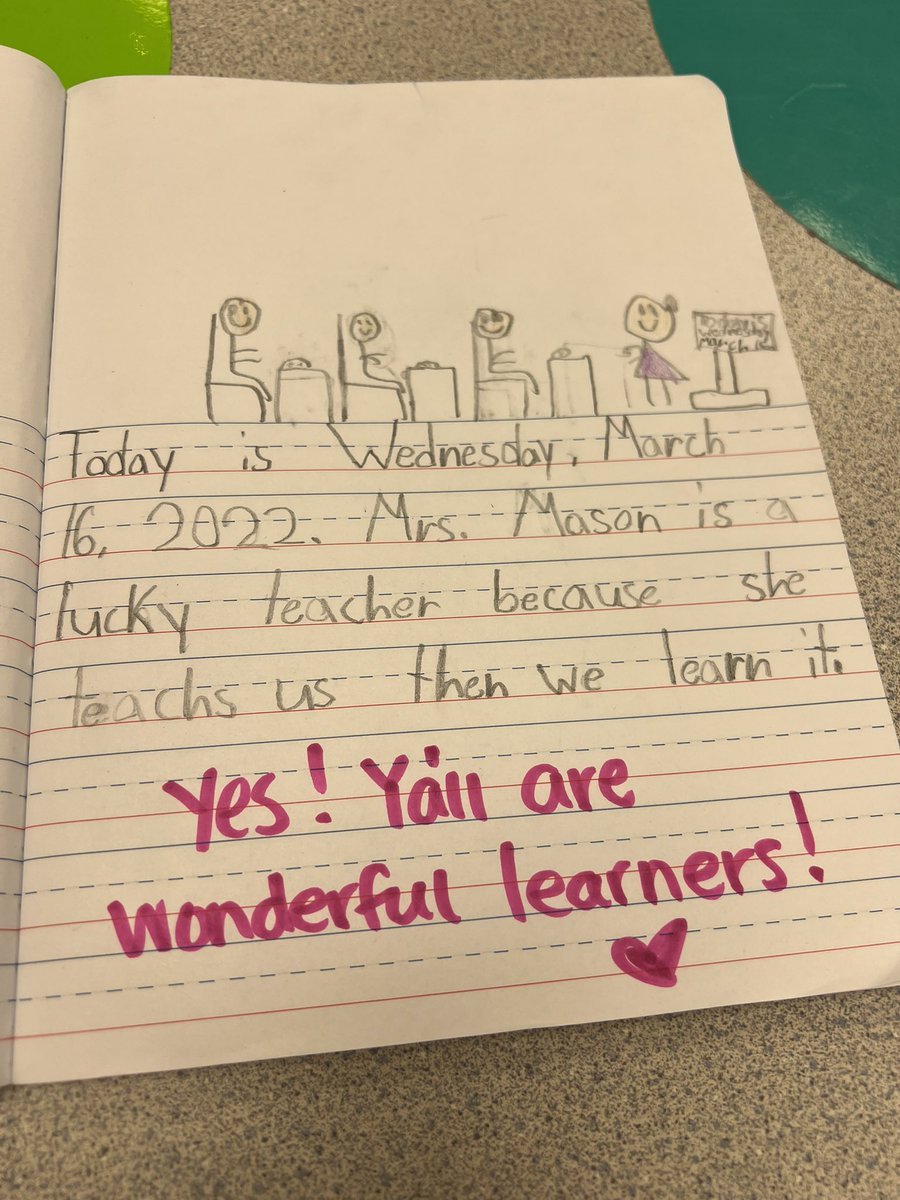 Today is
Wednesday
March 16
Today is Wednesday, March
16, 2022. Mrs. Mason is a
lucky teacher because she
teachs us then we learn it.
Yes! Y'all are
wonderful learners!